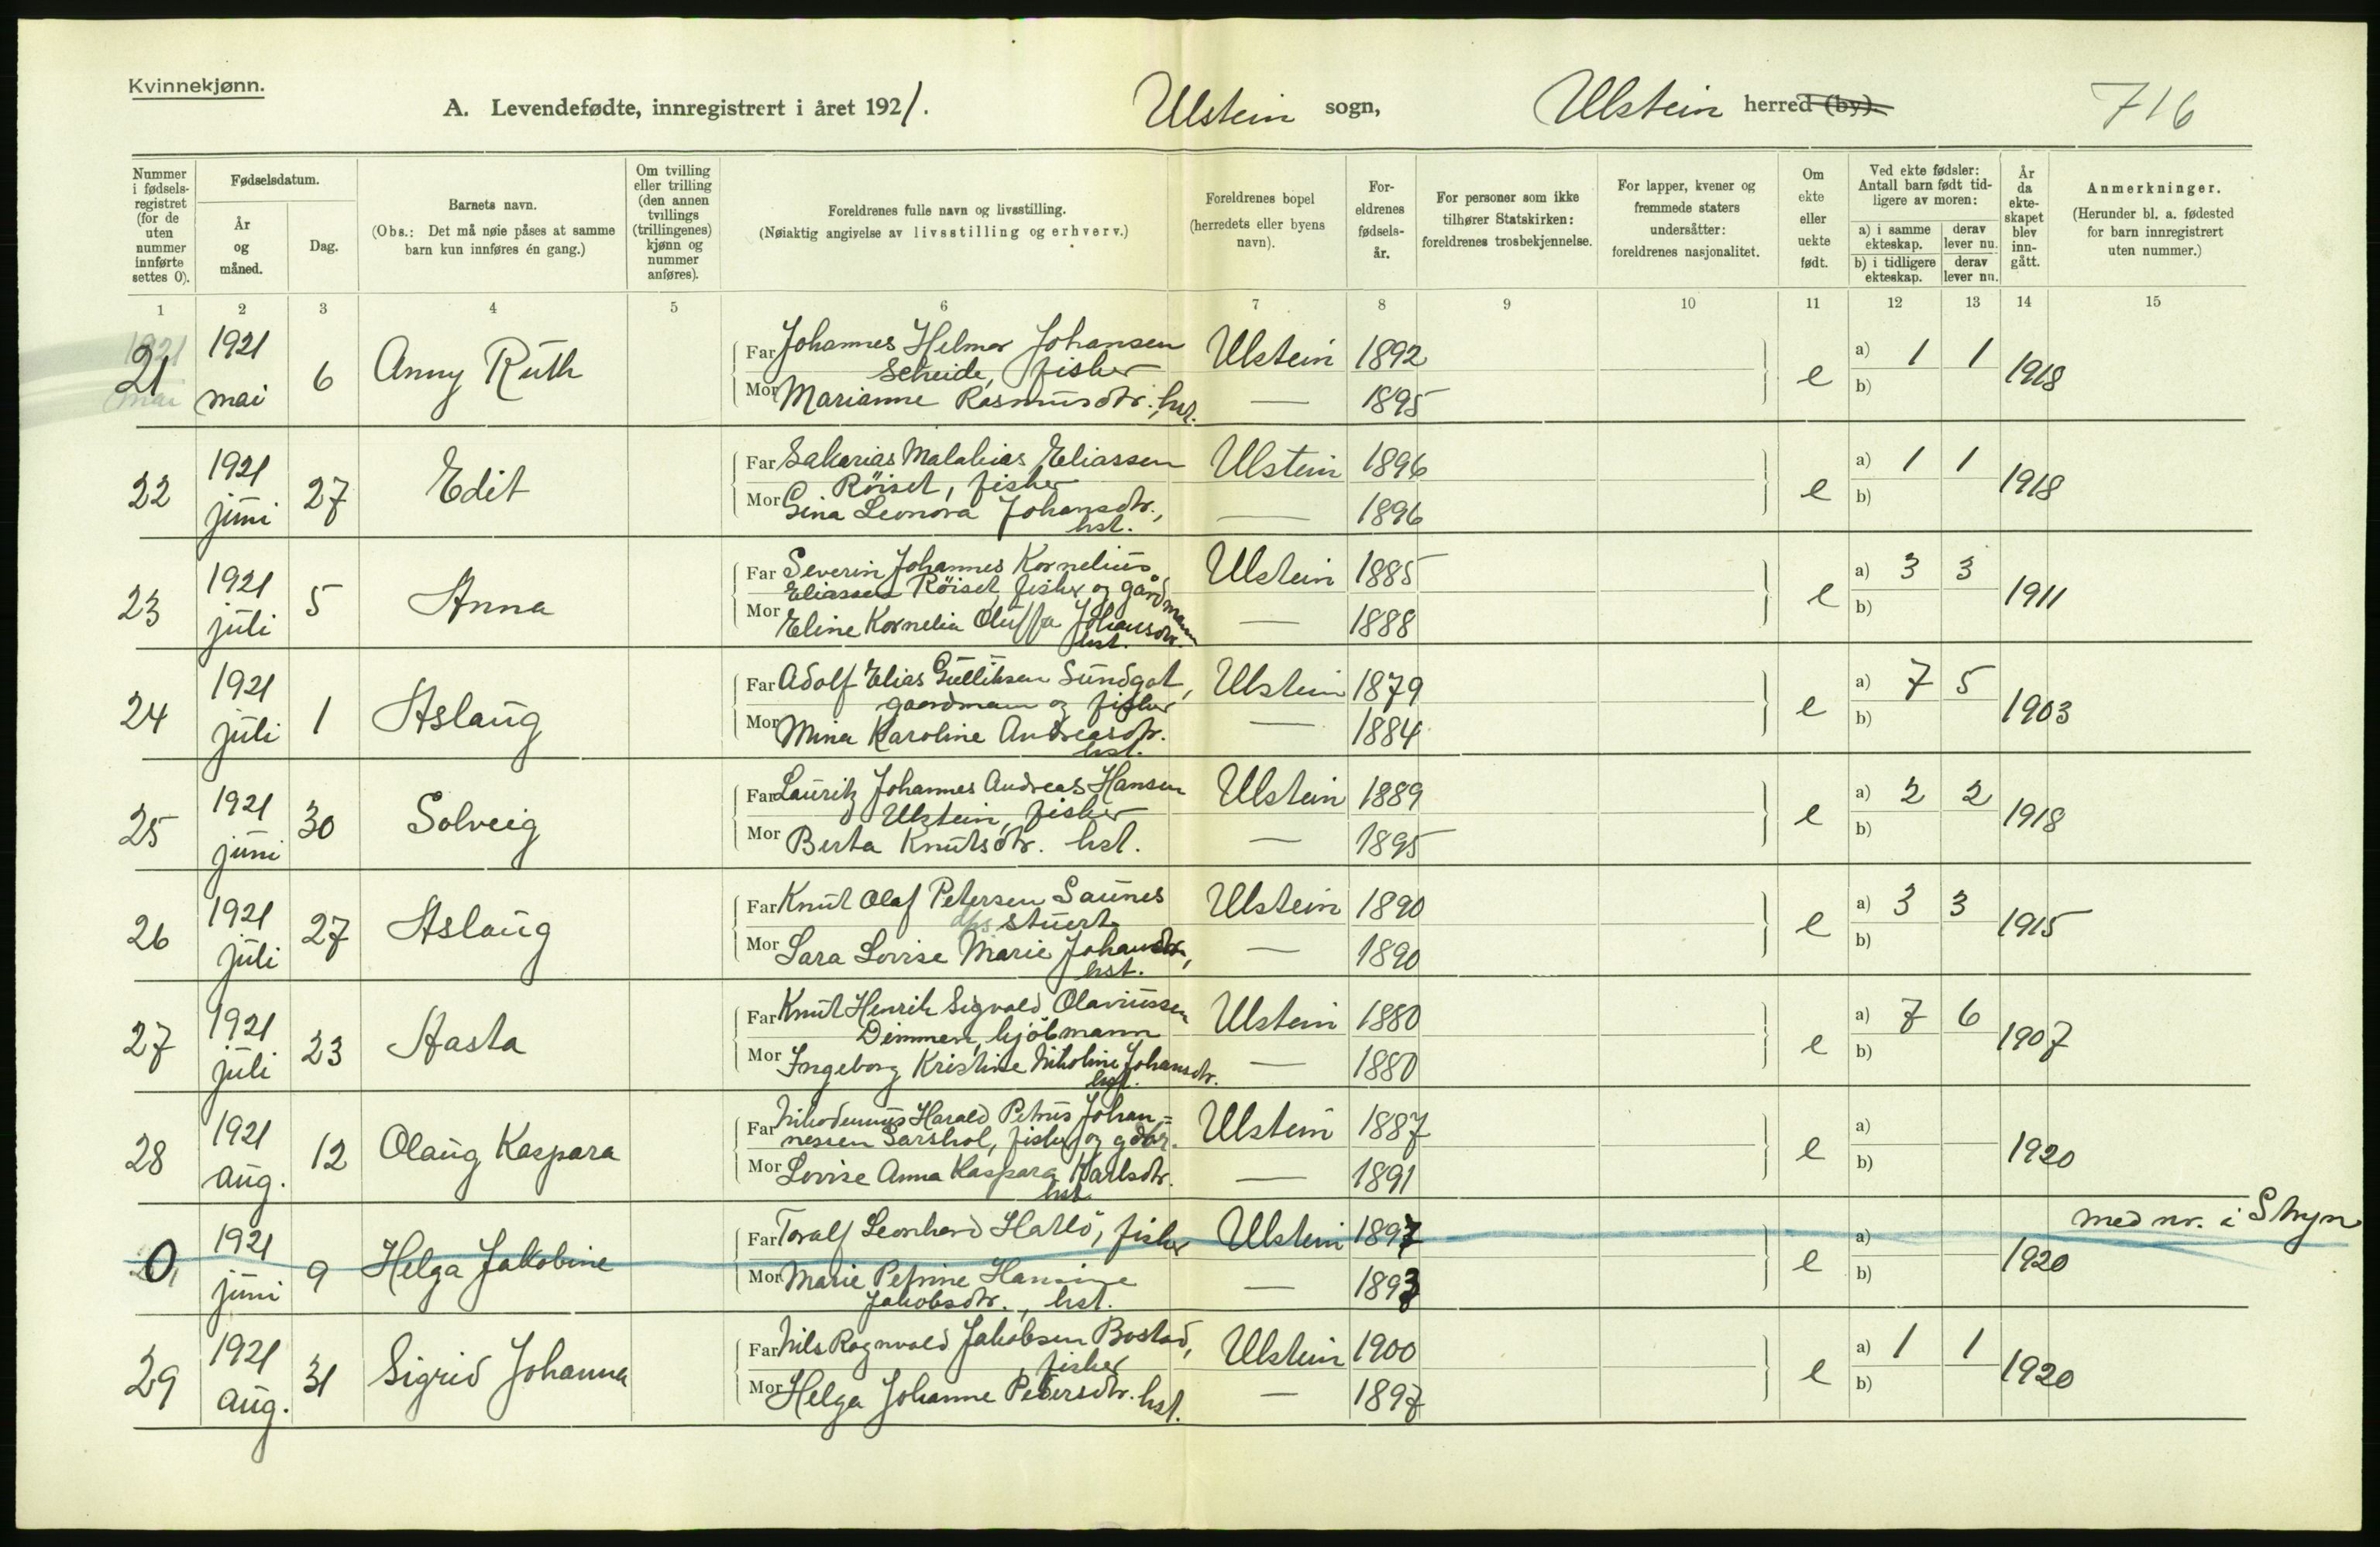 Kvinnekjønn.
A. Levendefødte, innregistrert i året 1921. Ulstein sogn, Ulstein herred (by). 716
Nummer i fødselsregistret (for de uten nummer innførte settes 0).
Fødselsdatum.
År og måned.
Dag.
Barnets navn.
(Obs.: Det må nøie påses at samme barn kun innføres én gang.)
Om tvilling eller trilling (den annen tvillings (trillingenes) kjønn og nummer anføres).
Foreldrenes fulle navn og livsstilling.
(Nøiaktig angivelse av livsstilling og erhverv.)
Foreldrenes bopel (herredets eller byens navn).
Foreldrenes fødselsår.
For personer som ikke tilhører Statskirken: foreldrenes trosbekjennelse.
For lapper, kvener og fremmede staters undersåtter: foreldrenes nasjonalitet.
Om ekte eller uekte født.
Ved ekte fødsler: Antall barn født tidligere av moren:
a) i samme ekteskap. derav lever nu.
b) i tidligere ekteskap. derav lever nu.
År da ekteskapet blev inngått.
Anmerkninger.
(Herunder bl. a. fødested for barn innregistrert uten nummer.)
1 2 3 4 5 6 7 8 9 10 11 12 13 14 15
21 1921 mai 6 Anny Ruth
Far Johannes Helmer Johansen Scheide, fisker Ulstein 1892
Mor Marianne Rasmusdtr. hst. — 1895
e a) 1 1 b) 1918
22 1921 juni 27 Edit
Far Sakarias Malakias Eliassen Röiset, fisker Ulstein 1896
Mor Gina Leonora Johansdtr., hst. — 1896
e a) 1 1 b) 1918
23 1921 juli 5 Anna
Far Severin Johannes Kornelius Eliassen Röiset, fisker og gårdmann Ulstein 1885
Mor Eline Kornelia Oluffa Johansdtr. hst. — 1888
e a) 3 3 b) 1911
24 1921 juli 1 Aslaug
Far Adolf Elias Gulliksen Sundgot, gaardmann og fisker Ulstein 1879
Mor Mina Karoline Andreasdtr. hst. — 1884
e a) 7 5 b) 1903
25 1921 juni 30 Solveig
Far Lauritz Johannes Andreas Hansen Ulstein, fisker Ulstein 1889
Mor Berta Knutsdtr. hst. — 1895
e a) 2 2 b) 1918
26 1921 juli 27 Aslaug
Far Knut Olaf Petersen Saunes dps stuert Ulstein 1890
Mor Sara Lovise Marie Johansdtr, hst. — 1890
e a) 3 3 b) 1915
27 1921 juli 23 Aasta
Far Knut Henrik Sigvald Olaviussen Dimmen, kjöbmann Ulstein 1880
Mor Ingeborg Kristine Nikoline Johansdtr. hst. — 1880
e a) 7 6 b) 1907
28 1921 aug. 12 Olaug Kaspara
Far Nikodemus Harald Petrus Johannessen Garshol, fisker og gdbr. Ulstein 1887
Mor Lovise Anna Kaspara Karlsdtr. hst — 1891
e a) b) 1920
0, 1921 juni 9 Helga Jakobine
Far Toralf Leonhard Hatlö, fisker Ulstein 1897
Mor Marie Petrine Hansine Jakobsdtr., hst. — 1893
e a) b) 1920 med nr. i Stryn
29 1921 aug. 31 Sigrid Johanna
Far Nils Ragnvald Jakobsen Bostad, fisker Ulstein 1900
Mor Helga Johanne Pedersdtr. hst. — 1897
e a) 1 1 b) 1920